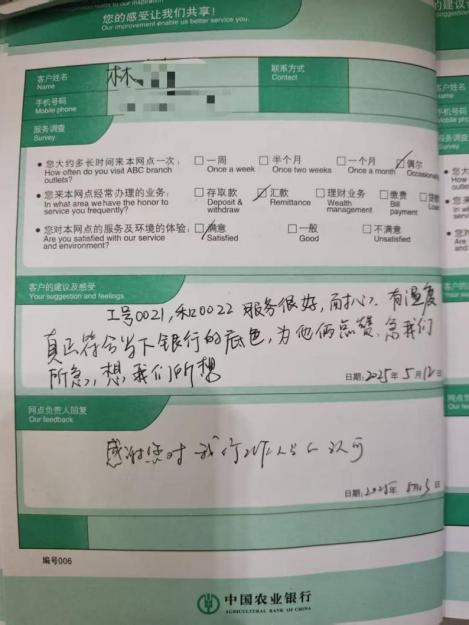 您的感受让我们共享！
Our improvement enable us better service you.
客户姓名 林 联系方式
Name Contact
手机号码
Mobile phone
服务调查
Survey
• 您大约多长时间来本网点一次： □ 一周 □ 半个月 □ 一个月 ☑ 偶尔
How often do you visit ABC branch outlets? Once a week Once two weeks Once a month Occasionally
• 您来本网点经常办理的业务： □ 存取款 ☑ 汇款 □ 理财业务 □ 缴费
In what area we have the honor to service you frequently? Deposit & withdraw Remittance Wealth management Bill payment
• 您对本网点的服务及环境的体验： ☑ 满意 □ 一般 □ 不满意
Are you satisfied with our service and environment? Satisfied Good Unsatisfied
客户的建议及感受
Your suggestion and feelings
工号0021,和0022 服务很好,而心、有温度
真正符合当下银行的底色,为他俩点赞、急我们
所急,想我们所想
日期: 2025年 5月12日
网点负责人回复
Our feedback
感谢您对我行工作人员的认可
日期: 2025年 5月13日
编号006
中国农业银行
AGRICULTURAL BANK OF CHINA